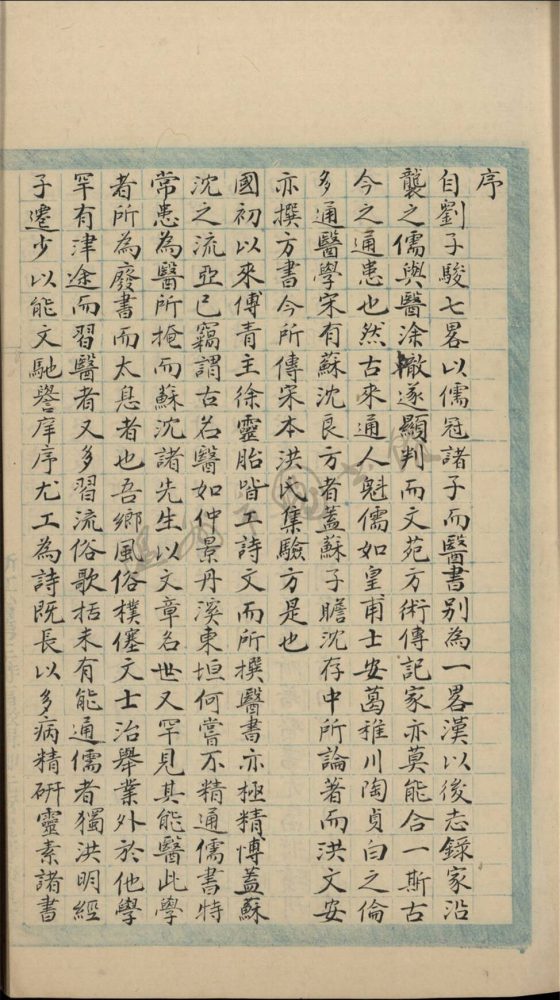 序
自劉子駿七畧以儒冠諸子而醫書别為一畧漢以後志錄家沿
襲之儒與醫涂轍遂顯判而文苑方術傳記家亦莫能合一斯古
今之通患也然古來通人魁儒如皇甫士安葛稚川陶貞白之倫
多通醫學宋有蘇沈良方者蓋蘇子瞻沈存中所論著而洪文安
亦撰方書今所傳宋本洪氏集驗方是也
國初以來傅青主徐靈胎皆工詩文而所撰醫書亦極精愽蓋蘇
沈之流亞已竊謂古名醫如仲景丹溪東垣何嘗不精通儒書特
常患為醫所掩而蘇沈諸先生以文章名世又罕見其能醫此學
者所為廢書而太息者也吾鄉風俗樸僿文士治舉業外於他學
罕有津途而習醫者又多習流俗歌括未有能通儒者獨洪明經
子遷少以能文馳譽庠序尤工為詩既長以多病精研靈素諸書